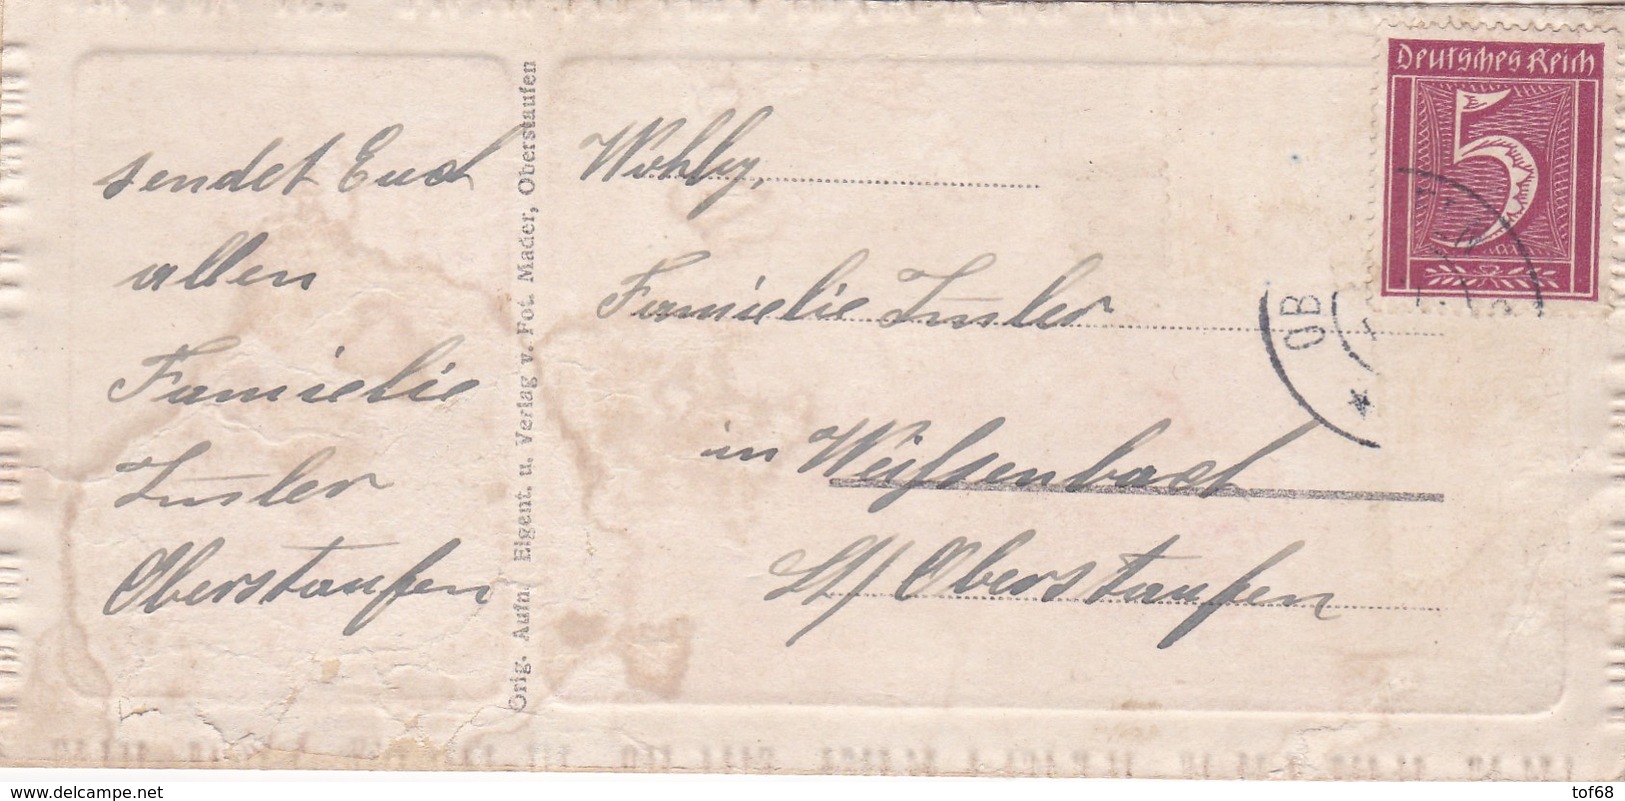 sendet Euch
allen
Familie
Oberstaufen
Orig. Aufn. Eigent. u. Verlag v. Fot. Mader, Oberstaufen
Wohlg.
Familie
in Weissenbach
Oberstaufen
Deutsches Reich
5
OB
www.delcampe.net
tof68